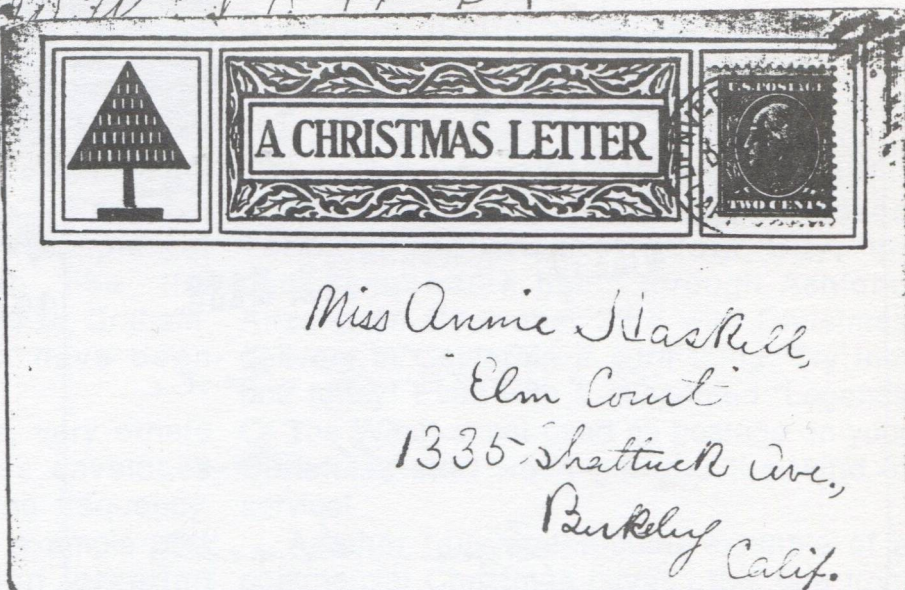 A CHRISTMAS LETTER
U.S. POSTAGE
TWO CENTS
Miss Annie Haskell,
"Elm Court"
1335 Shattuck Ave.,
Berkeley
Calif.